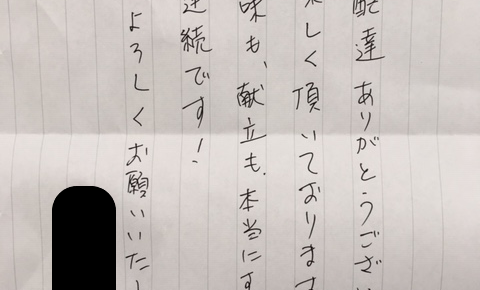 配達ありがとうござい
しく頂いております
味も、献立も、本当にす
連続です！
よろしくお願いいたし